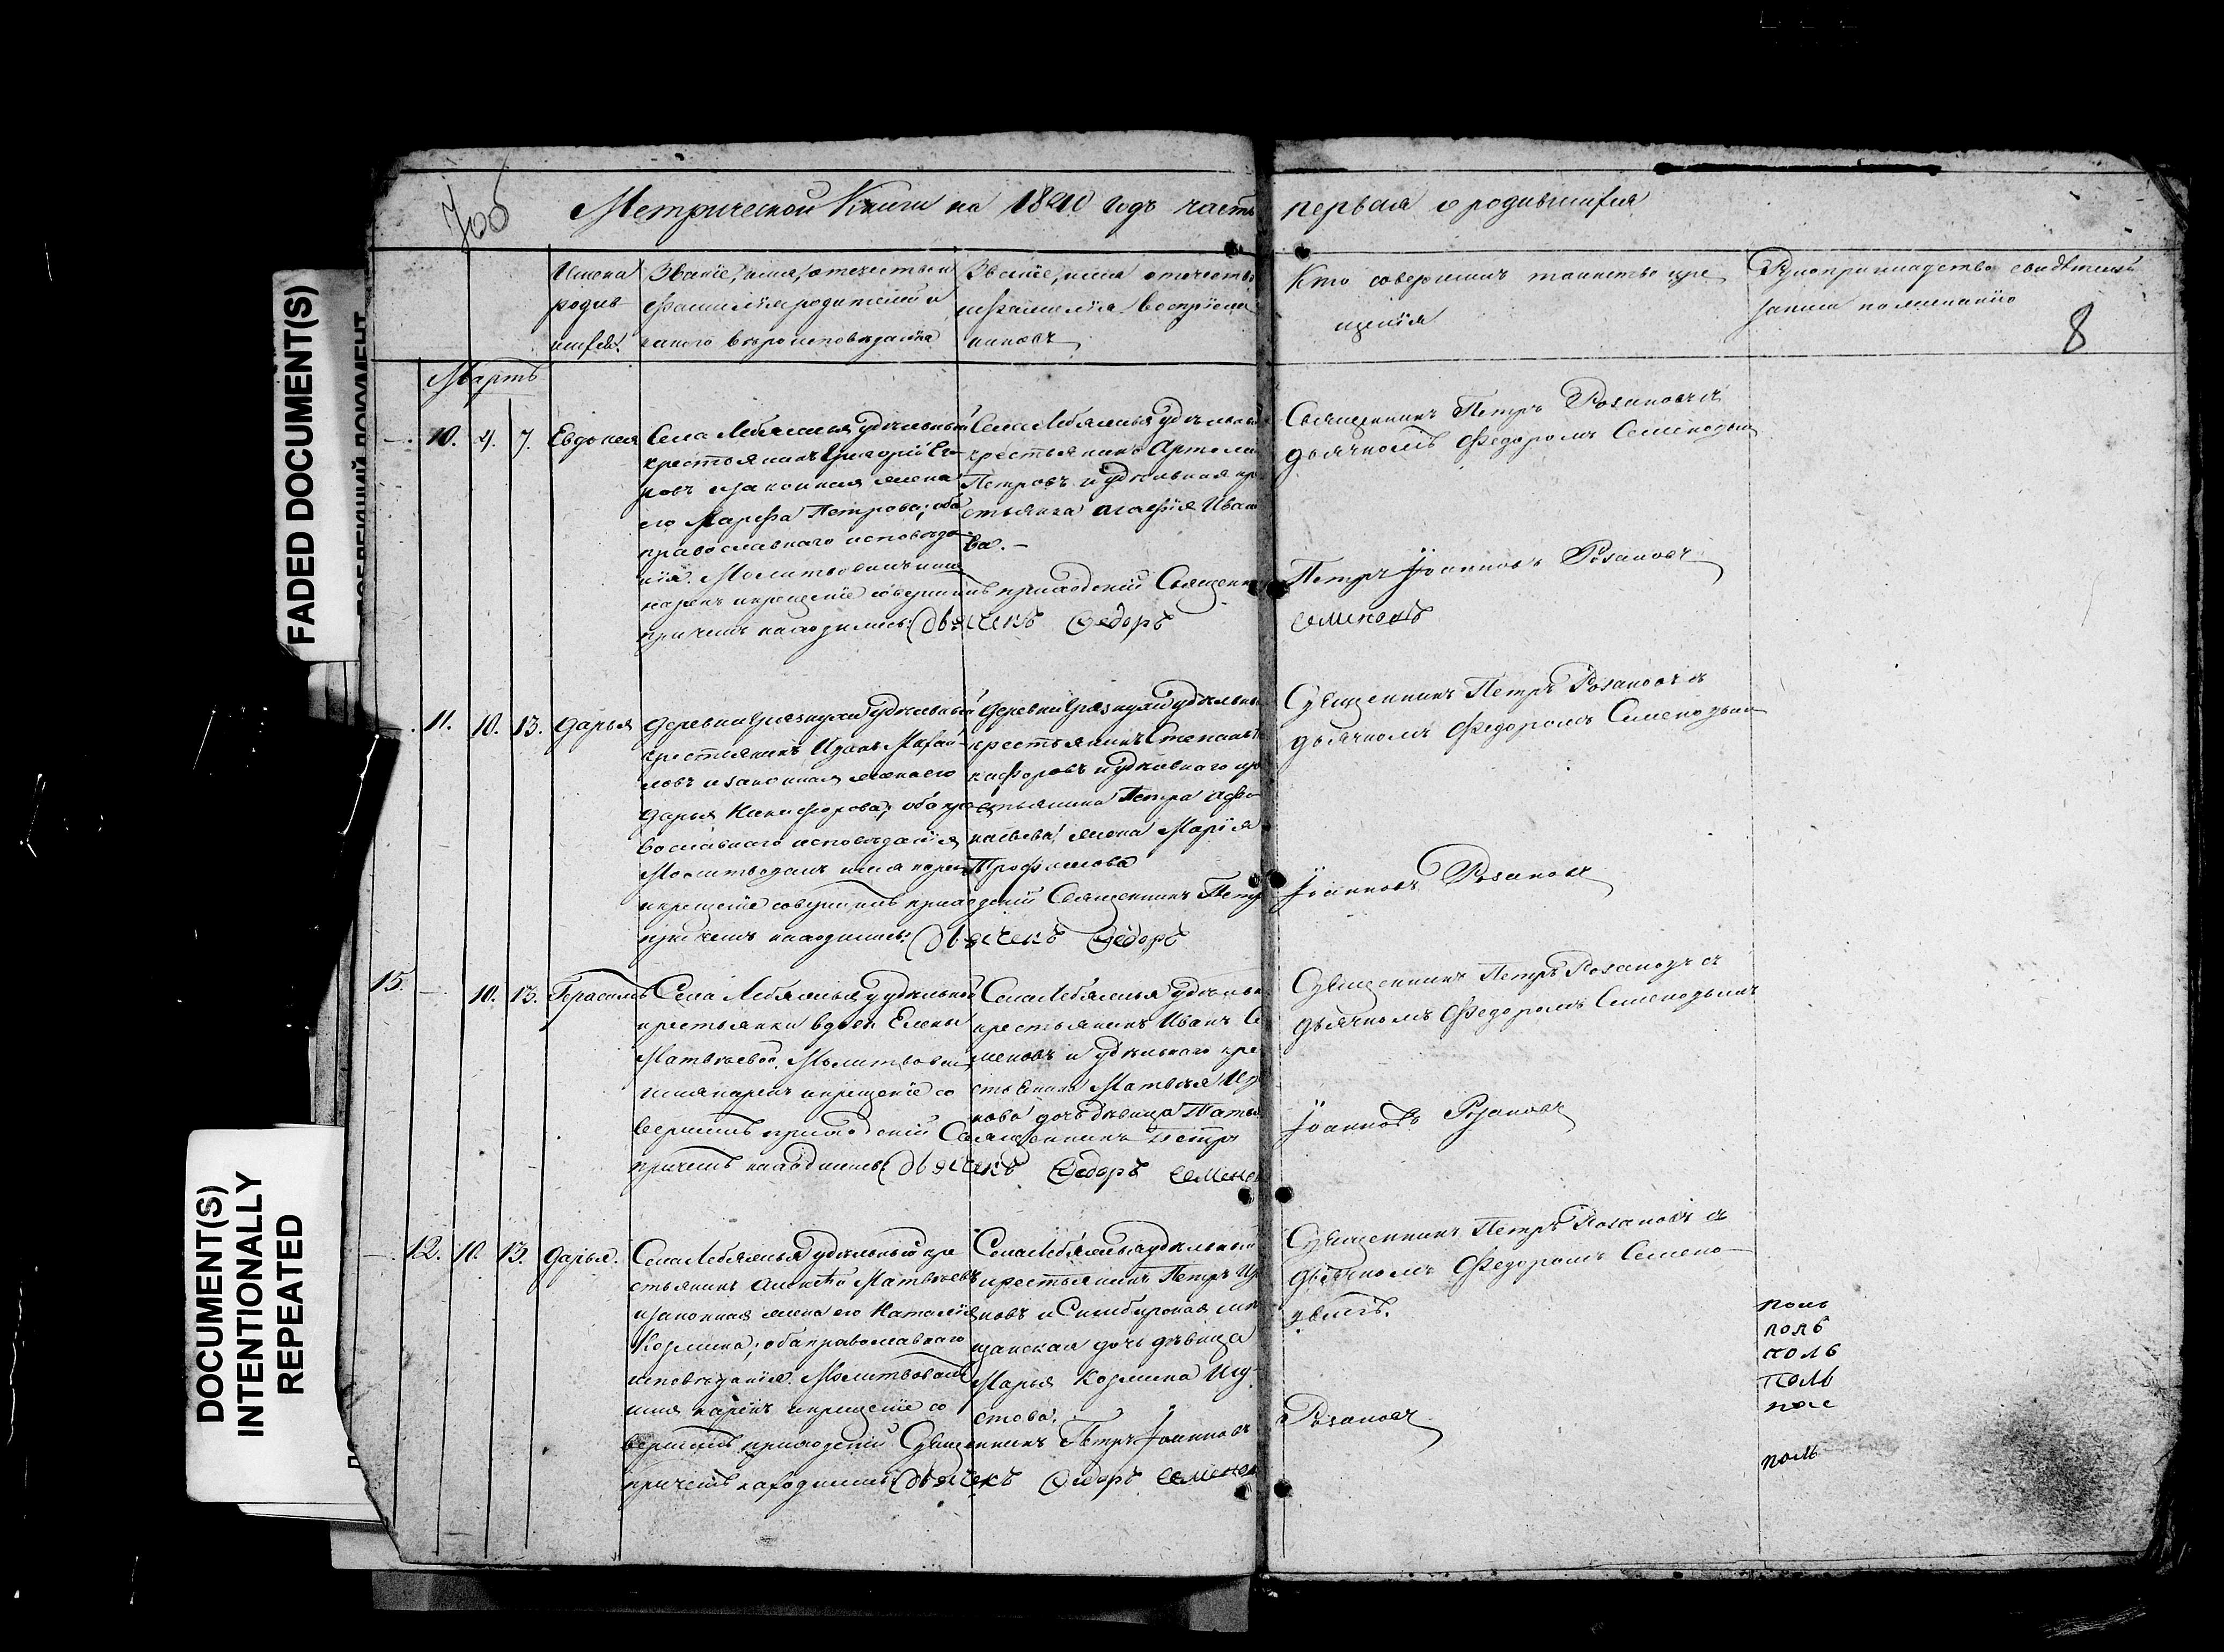 FADED DOCUMENT(S)
DOCUMENT(S)
INTENTIONALLY
REPEATED
Метрической Книги на 1840 годъ часть первая о родившихся
8
Имена
родив
шихся.
Званіе, имя, отечество и
фамилія родителей и
какого вѣроисповѣданія
Званіе, имя отечество
и фамилія воспріем
никовъ
Кто совершилъ таинство кре
щенія
Рукоприкладство свидѣтелей
записи по желанію
Мартъ
10. 4. 7. Евдокия
Села Лебяжья удѣльный
крестьянинъ Григорій Его
ровъ и законная жена
его Марѳа Петрова; оба
православнаго исповѣда
нія. Молитвовалъ имя
нарекъ и крещеніе совершилъ приходскій Священникъ
причемъ находились: Дьячекъ Ѳедоръ
Села Лебяжья удѣльный
крестьянинъ Артеми
Петровъ и удѣльная кре
стьянка Агафія Ивано
ва.
Священникъ Петръ Розановъ съ
дьячкомъ Федоромъ Семеновым
Петръ Іоанновъ Розановъ
Семеновъ
11. 10. 13. Дарья
Деревни Грязнухи удѣльный
крестьянинъ Иванъ Михаи
ловъ и законная жена его
Дарья Никифорова; оба пра
вославнаго исповѣданія
Молитвовалъ имя нарекъ
и крещеніе совершилъ приходскій Священникъ Петръ
причемъ находились: Дьячекъ Ѳедоръ
Деревни Грязнухи удѣльный
крестьянинъ Степанъ Ни
кифоровъ и удѣльнаго кре
стьянина Петра Афа
насьева жена Марія
Трофимова
Священникъ Петръ Розановъ съ
дьячкомъ Федоромъ Семеновым
Іоанновъ Розановъ
15. 10. 13. Герасимъ
Села Лебяжья удѣльной
крестьянки вдовы Елены
Матвѣевой. Молитвовалъ
имя нарекъ и крещеніе со
вершилъ приходскій Священникъ Петръ
причемъ находились Дьячекъ Ѳедоръ Семенов
Села Лебяжья удѣльный
крестьянинъ Иванъ Се
меновъ и удѣльнаго кре
стьянина Матвѣя Ива
нова дочь дѣвица
Священникъ Петръ Розановъ съ
дьячкомъ Федоромъ Семеновымъ
Іоанновъ Розановъ
12. 10. 13. Дарья.
Села Лебяжья удѣльный кре
стьянинъ Алексѣй Матвѣевъ
и законная жена его Наталія
Козмина; оба православнаго
исповѣданія. Молитвовалъ
имя нарекъ и крещеніе со
вершилъ приходскій Священникъ Петръ Іоанновъ
причемъ находились Дьячекъ Ѳедоръ Семенов
Села Лебяжья удѣльный
крестьянинъ Петръ Ива
новъ и Симбирская мѣ
щанская дочь дѣвица
Марья Козмина
Священникъ Петръ Розановъ съ
Дьячкомъ Федоромъ Семено
вымъ.
Розановъ